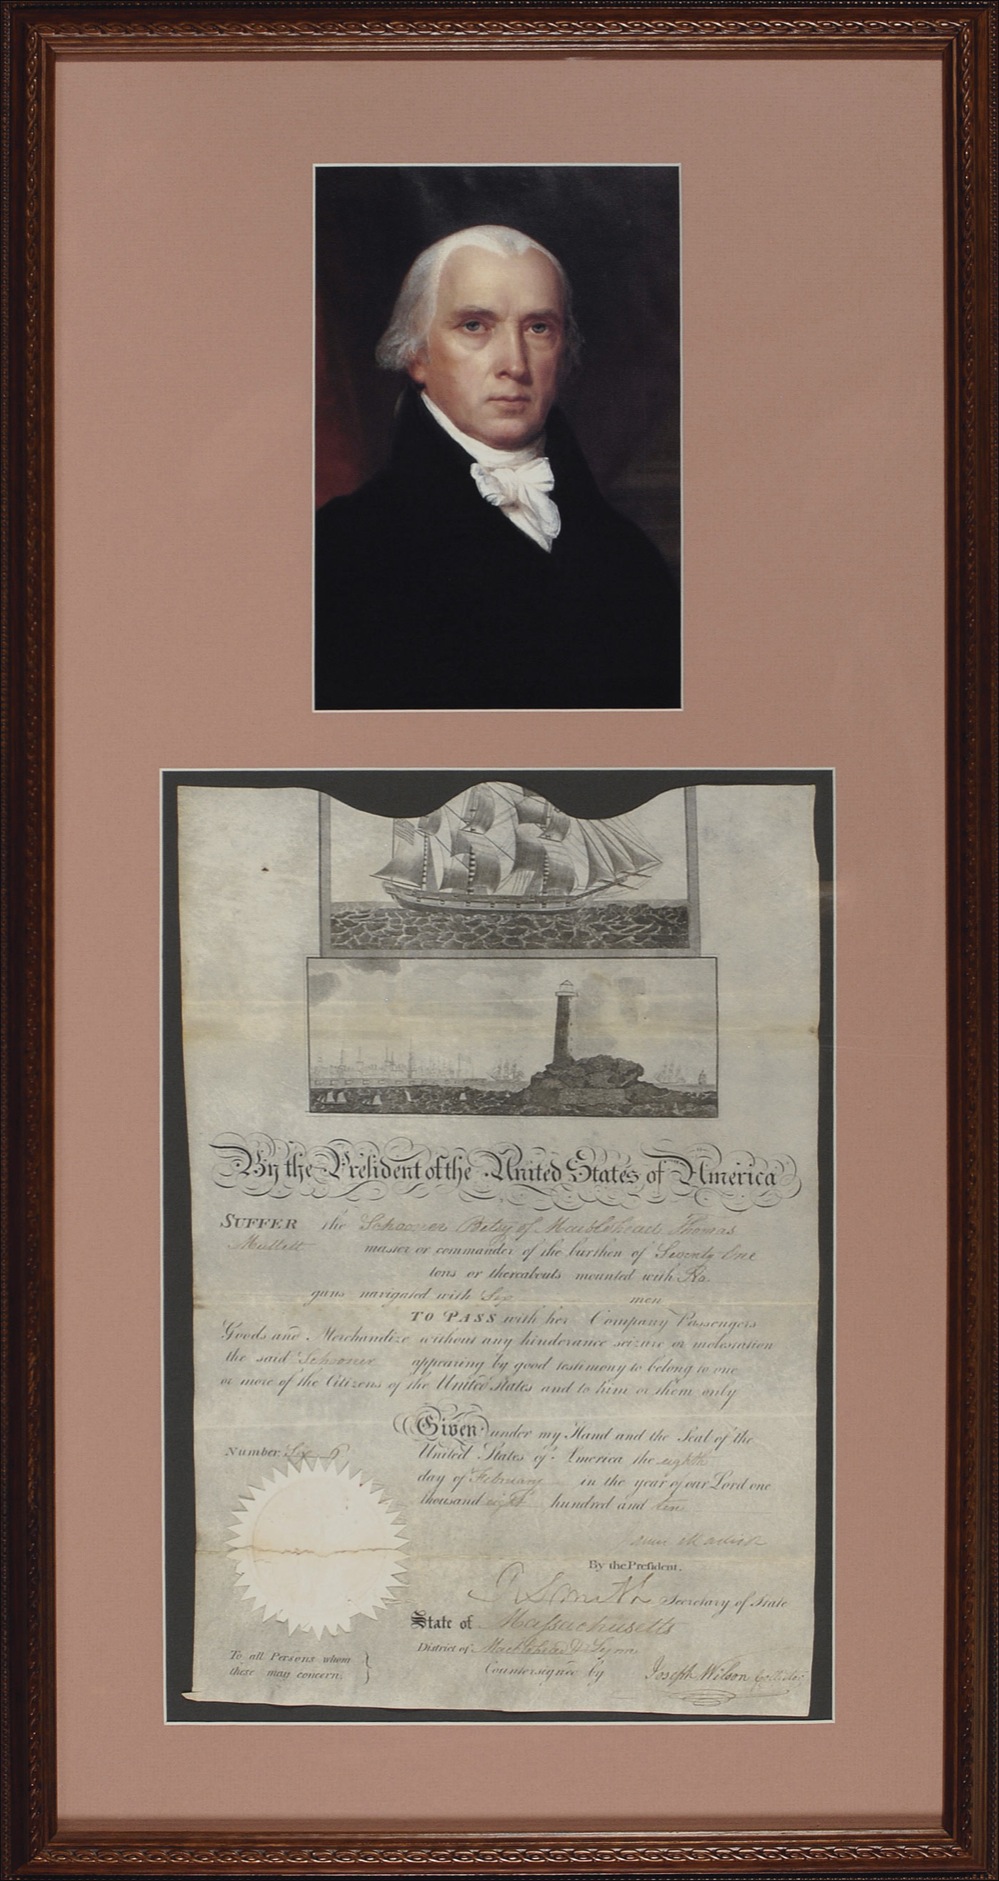 By the President of the United States of America
SUFFER the Schooner Betsy of Marblehead, Thomas
Mullett master or commander of the burthen of Seventy One
tons or thereabouts mounted with No
guns navigated with Six men
TO PASS with her Company Passengers
Goods and Merchandize without any hinderance seizure or molestation
the said Schooner appearing by good testimony to belong to one
or more of the Citizens of the United States and to him or them only
Given under my Hand and the Seal of the
United States of America the eighth
day of February in the year of our Lord one
thousand eight hundred and ten
Number Six 6
James Madison
By the President,
R Smith Secretary of State
State of Massachusetts
District of Marblehead & Lynn
Countersigned by Joseph Wilson Collector
To all Persons whom
these may concern.